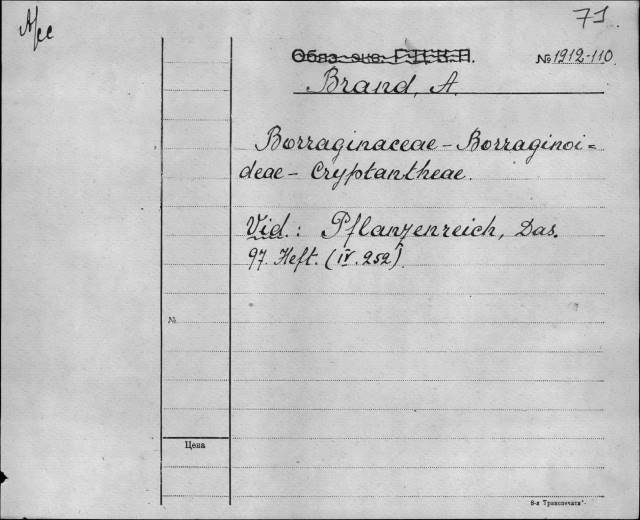 71.
№ 1912-110
Brand, A.
Borraginaceae - Borraginoi=
deae - Cryptantheae.
Vid.: Pflanzenreich, Das.
97. Heft. (IV. 252).
№
Цена
8-я Транспечати"-